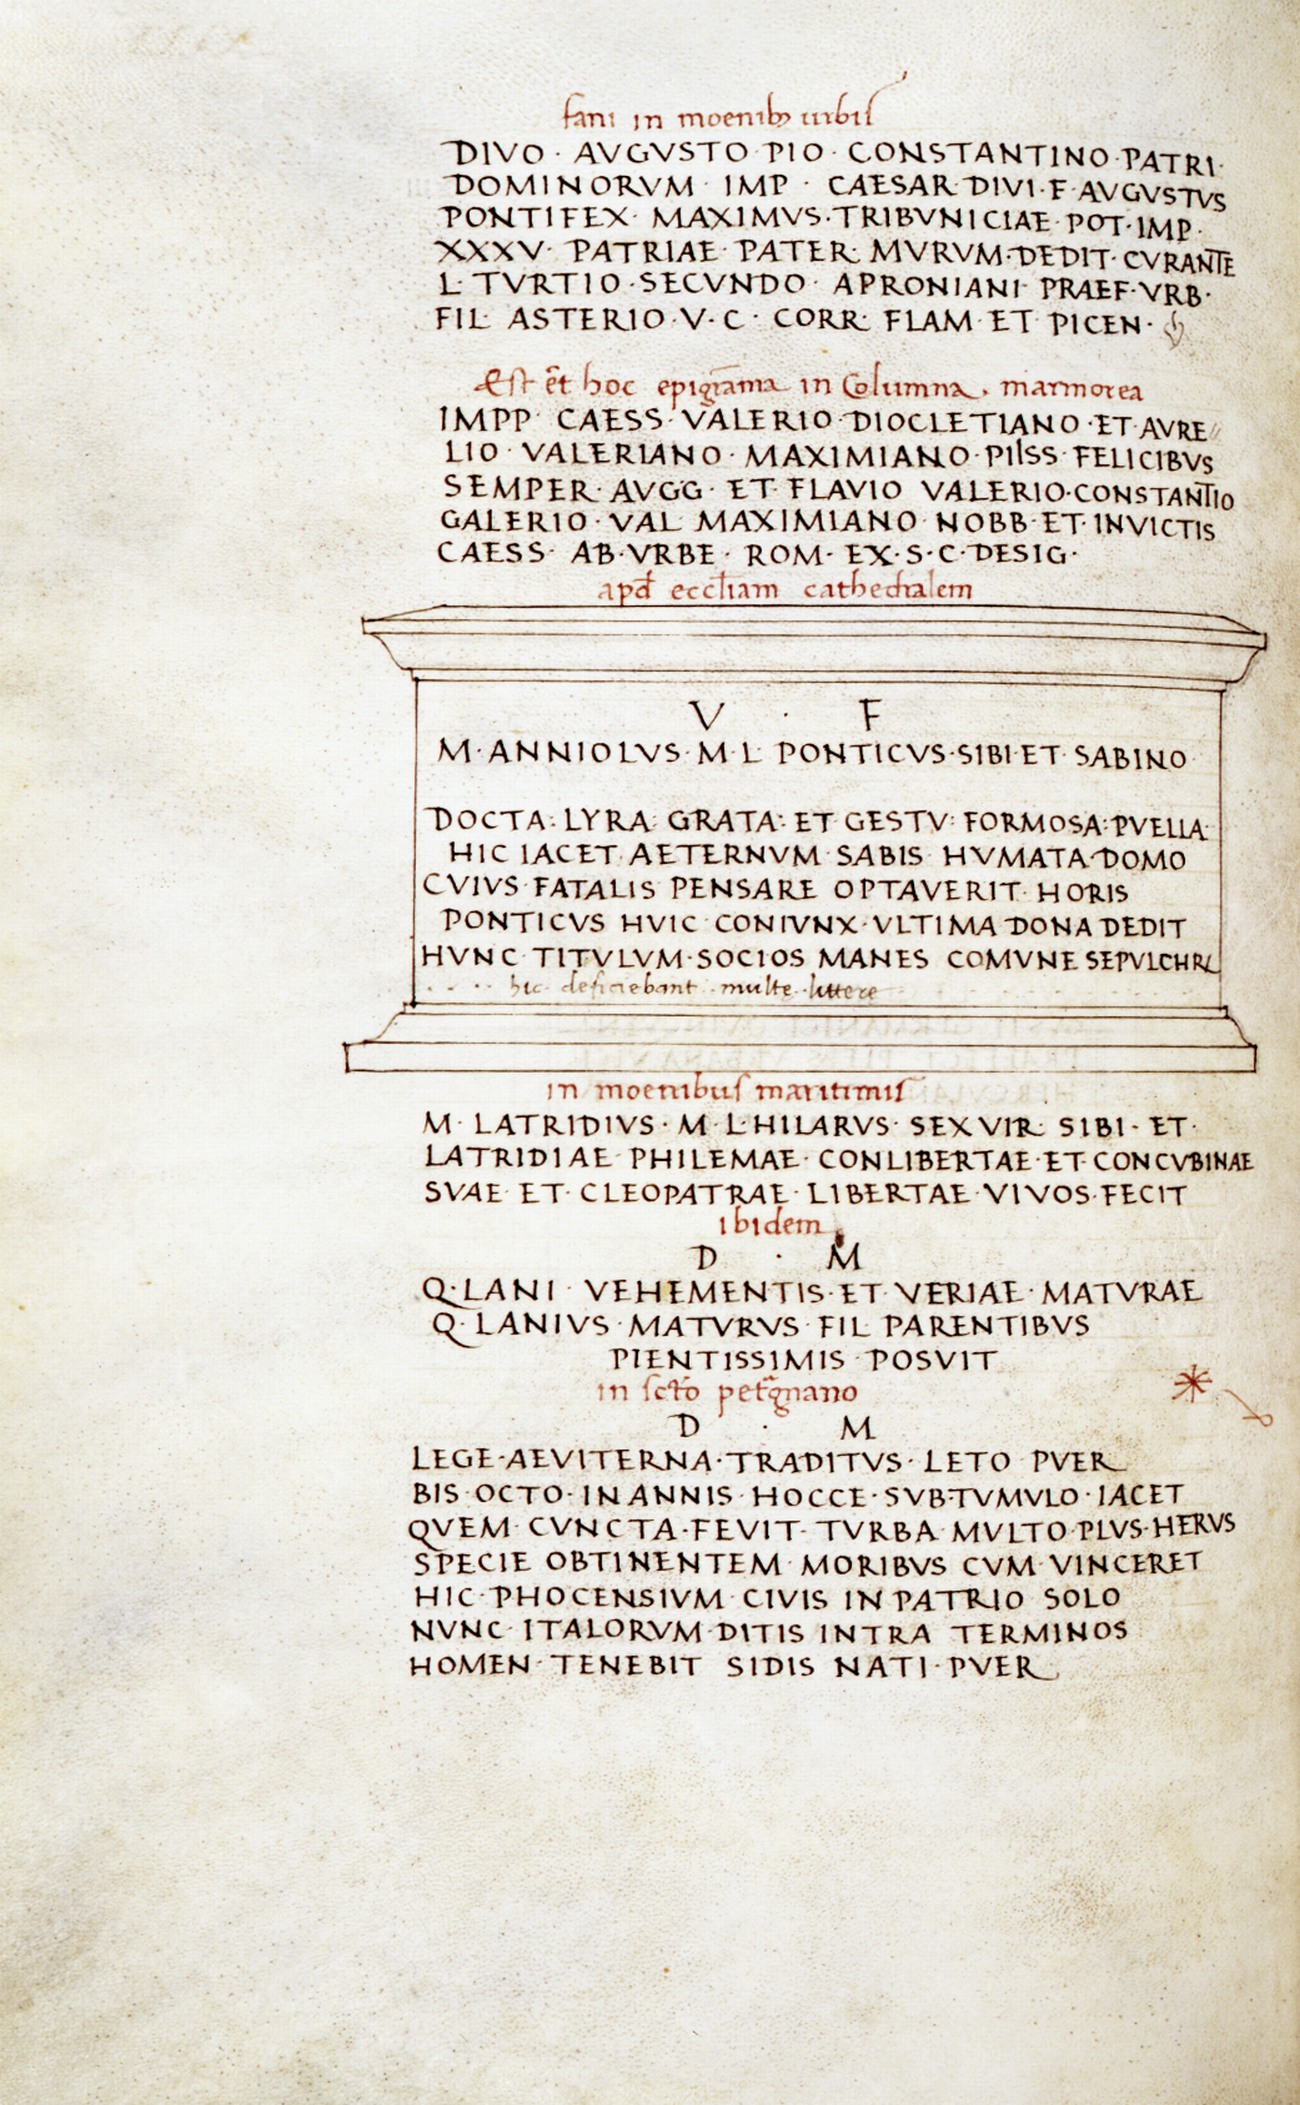 fani in moenib; urbis
DIVO · AVGVSTO · PIO · CONSTANTINO · PATRI ·
DOMINORVM · IMP · CAESAR · DIVI · F · AVGVSTVS
PONTIFEX · MAXIMVS · TRIBVNICIAE · POT · IMP ·
XXXV · PATRIAE · PATER · MVRVM · DEDIT · CVRANTE
L · TVRTIO · SECVNDO · APRONIANI · PRAEF · VRB ·
FIL · ASTERIO · V · C · CORR · FLAM · ET PICEN ·
Est et̄ hoc epigrāma in Columna marmorea
IMPP · CAESS · VALERIO · DIOCLETIANO · ET · AVRE
LIO · VALERIANO · MAXIMIANO · PIISS · FELICIBVS
SEMPER · AVGG · ET · FLAVIO VALERIO · CONSTANTIO
GALERIO · VAL MAXIMIANO NOBB · ET · INVICTIS
CAESS · AB · VRBE · ROM · EX · S · C · DESIG ·
apd̄ eccl̄iam cathedralem
V · F
M · ANNIOLVS · M · L · PONTICVS · SIBI · ET · SABINO
DOCTA : LYRA : GRATA : ET GESTV : FORMOSA : PVELLA
HIC IACET AETERNVM SABIS HVMATA DOMO
CVIVS · FATALIS PENSARE OPTAVERIT · HORIS
PONTICVS HVIC CONIVNX · VLTIMA DONA DEDIT
HVNC · TITVLVM · SOCIOS MANES COMVNE SEPVLCHRI
. . . . hic deficiebant multe littere
in moenibus maritimis
M · LATRIDIVS · M · L · HILARVS · SEXVIR · SIBI · ET ·
LATRIDIAE · PHILEMAE · CONLIBERTAE · ET · CONCVBINAE
SVAE · ET · CLEOPATRAE · LIBERTAE · VIVOS · FECIT
ibidem
D · M
Q · LANI · VEHEMENTIS · ET · VERIAE · MATVRAE
Q · LANIVS · MATVRVS · FIL PARENTIBVS
PIENTISSIMIS · POSVIT
in sct̄o pet̄gnano
D · M
LEGE · AEVITERNA · TRADITVS · LETO PVER
BIS · OCTO · IN ANNIS · HOCCE · SVB · TVMVLO · IACET
QVEM · CVNCTA · FEVIT · TVRBA MVLTO PLVS · HERVS
SPECIE OBTINENTEM · MORIBVS CVM VINCERET
HIC · PHOCENSIVM · CIVIS IN PATRIO SOLO
NVNC · ITALORVM · DITIS INTRA TERMINOS
HOMEN · TENEBIT SIDIS NATI · PVER